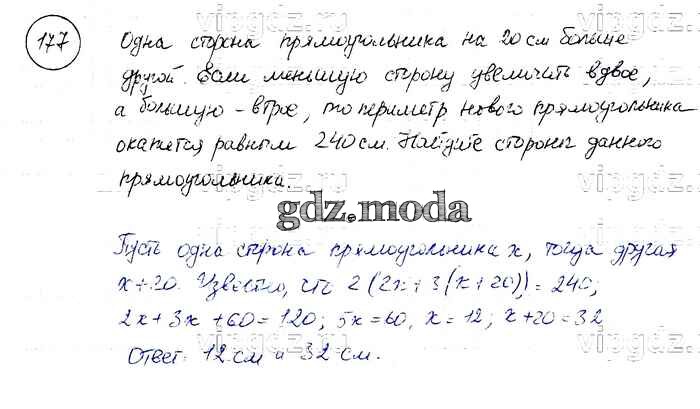 177
Одна сторона прямоугольника на 20 см больше
другой. Если меньшую сторону увеличить вдвое,
а большую – втрое, то периметр нового прямоугольника
окажется равным 240 см. Найдите стороны данного
прямоугольника.
gdz.moda
Пусть одна сторона прямоугольника x, тогда другая
x+20. Известно, что 2(2x+3(x+20))=240;
2x+3x+60=120; 5x=60, x=12; x+20=32
Ответ: 12 см и 32 см.
vipgdz.ru
vipgdz.ru
vipgdz.ru
vipgdz.ru
vipgdz.ru
vipgdz.ru